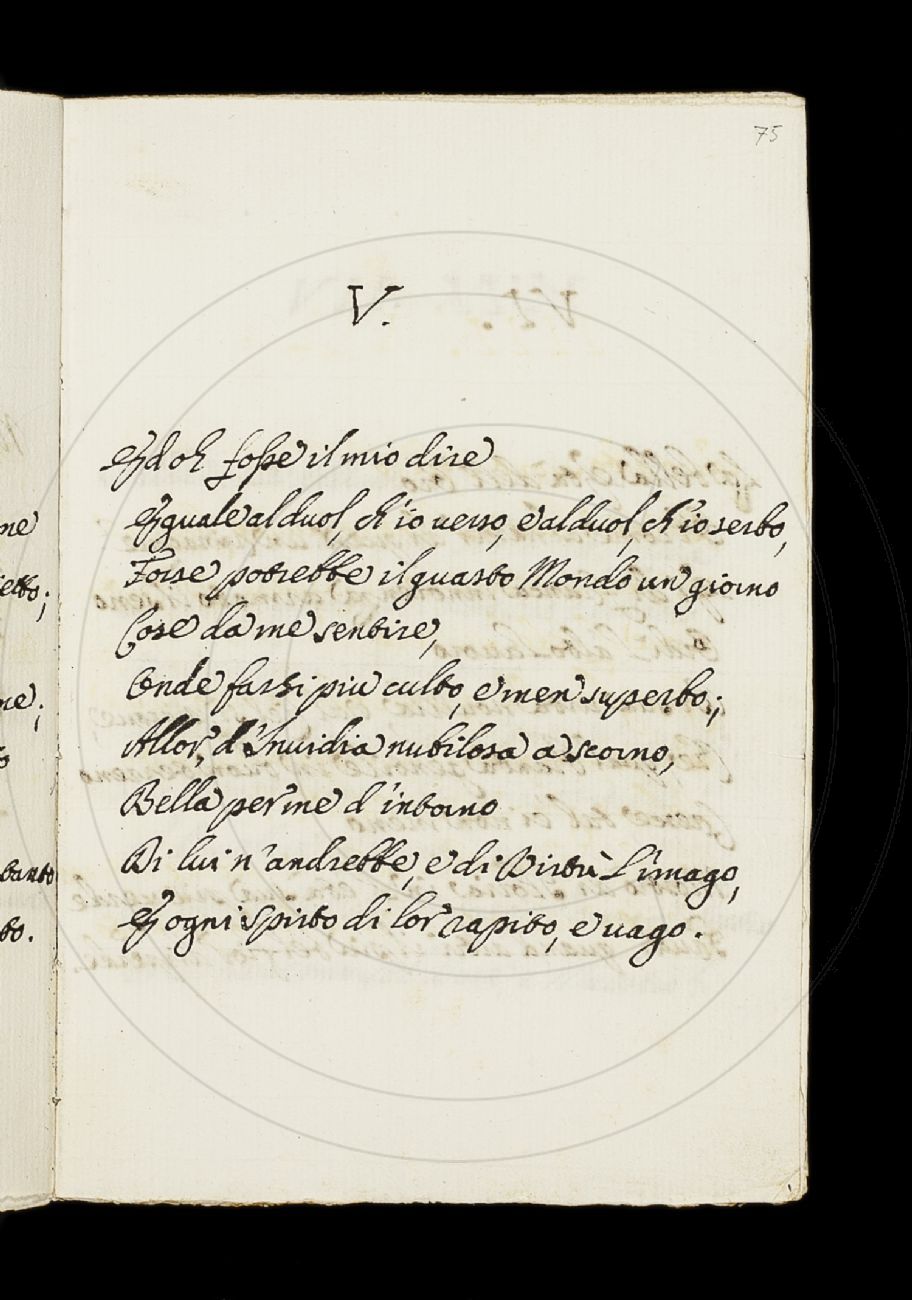 75
V.
Ed oh fosse il mio dire
Eguale al duol, ch'io verso, e al duol, ch'io serbo,
Forse potrebbe il guasto Mondo un giorno
Cose da me sentire,
Onde farsi piu culto, e men superbo;
Allor, d'Invidia nubilosa a scorno,
Bella per me d'intorno
Di lui n'andrebbe, e di Virtù l'imago,
E ogni spirto di lor rapito, e vago.